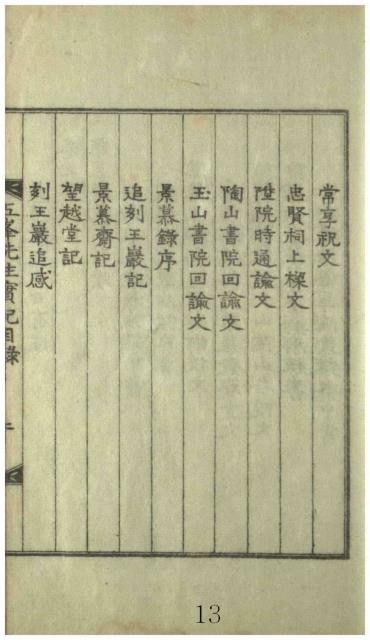 常享祝文
忠賢祠上樑文
陞院時通諭文
陶山書院回諭文
玉山書院回諭文
景慕錄序
追刻王巖記
景慕齋記
望越堂記
刻王巖追感
五峯先生實紀目錄
二
13